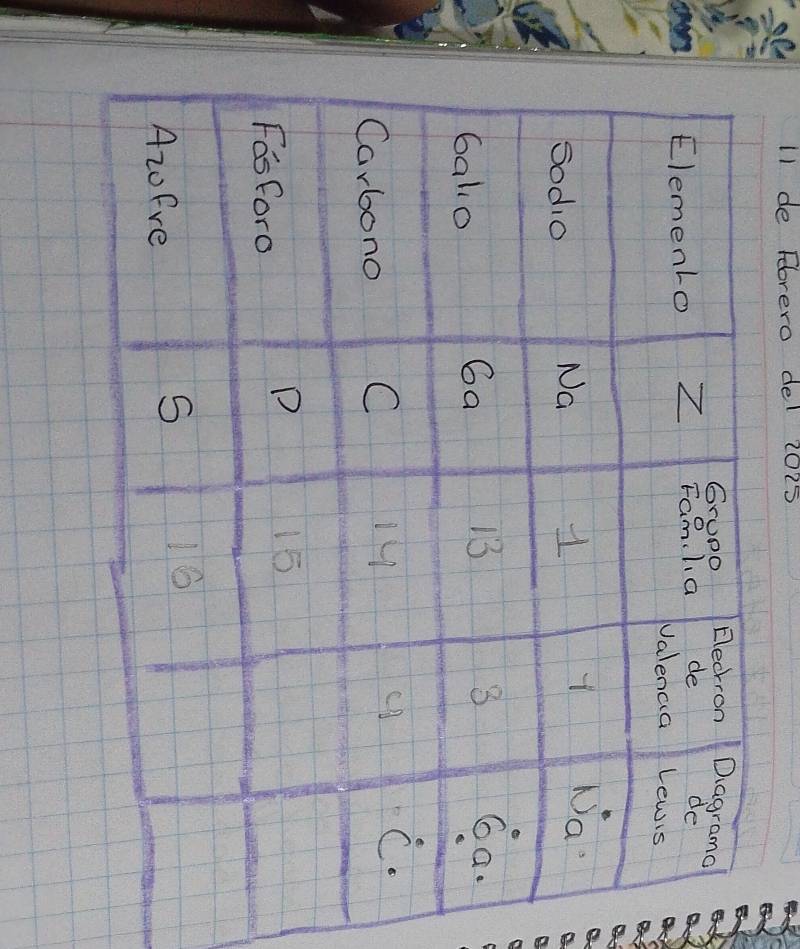 11 de Febrero del 2025
Elemento Z Grupo o Familia Electron de Valencia Diagrama de Lewis
Sodio Na 1 1 Na
Galio Ga 13 3 Ga
Carbono C 14 4 C
Fósforo P 15
Azufre S 16